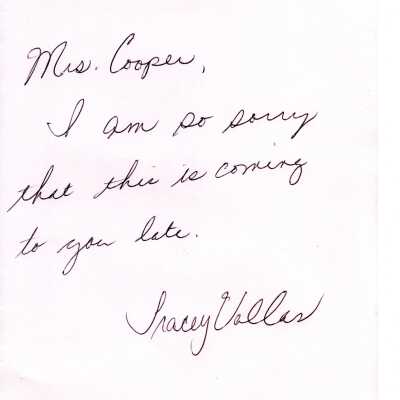 Mrs. Cooper,
I am so sorry
that this is coming
to you late.
Tracey Vallas